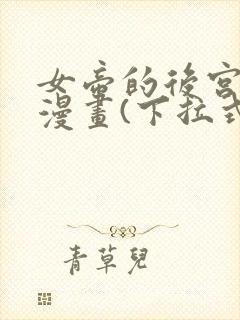 女帝的後宮
漫畫(下拉式
青草兒